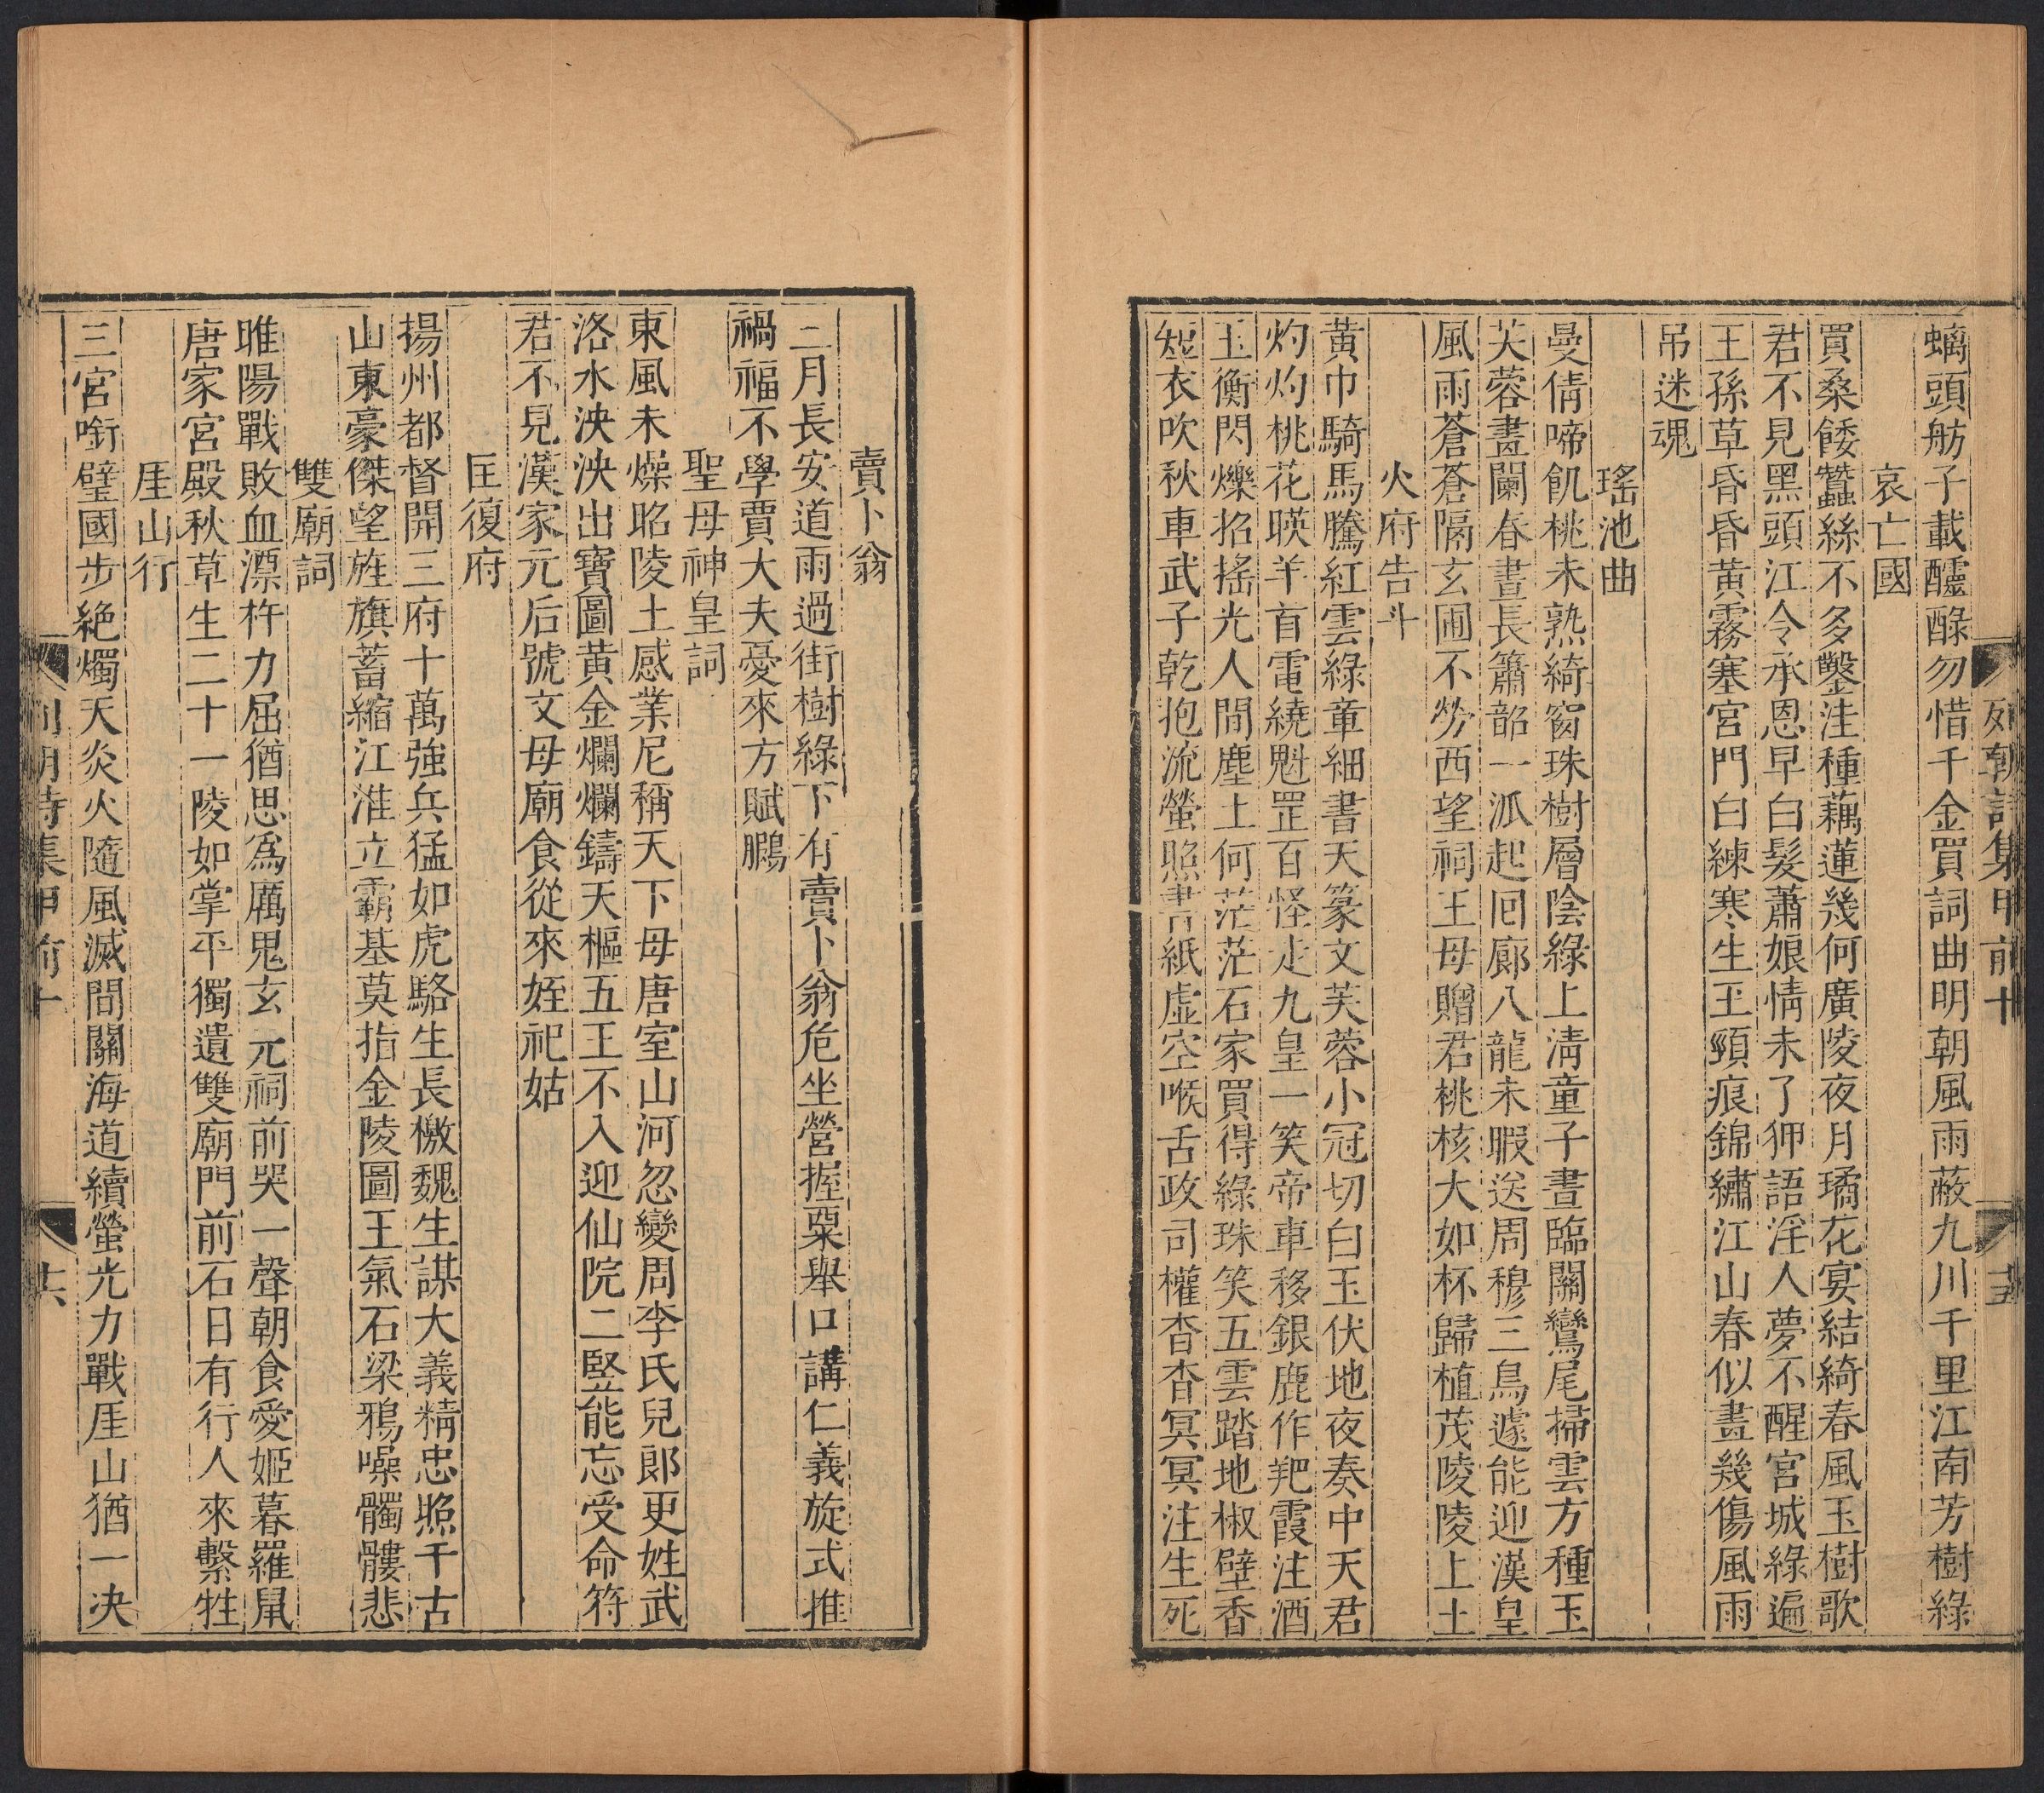 列朝詩集甲前十
十五
螭頭舫子載醽醁勿惜千金買詞曲明朝風雨蔽九川千里江南芳樹綠
哀亡國
買桑餧蠶絲不多鑿注種藕蓮幾何廣陵夜月璚花宴結綺春風玉樹歌
君不見黑頭江令承恩早白髮蕭娘情未了狎語淫人夢不醒宮城綠遍
王孫草昏昏黃霧塞宮門白練寒生玉頸痕錦繡江山春似畫幾傷風雨
吊迷魂
瑤池曲
曼倩啼飢桃未熟綺窗珠樹層陰綠上清童子晝臨關鸞尾掃雲方種玉
芙蓉畫闌春晝長簫韶一派起囘廊八龍未暇送周穆三鳥遽能迎漢皇
風雨蒼蒼隔玄圃不勞西望祠王母贈君桃核大如杯歸植茂陵陵上土
火府告斗
黃巾騎馬騰紅雲綠章細書天篆文芙蓉小冠切白玉伏地夜奏中天君
灼灼桃花暎羊首電繞魁罡百怪走九皇一笑帝車移銀鹿作羓霞注酒
玉衡閃爍招搖光人間塵土何茫茫石家買得綠珠笑五雲踏地椒壁香
短衣吹秋車武子乾抱流螢照書紙虛空喉舌政司權杳杳冥冥注生死
賣卜翁
二月長安道雨過街樹綠下有賣卜翁危坐營握粟舉口講仁義旋式推
禍福不學賈大夫憂來方賦鵩
聖母神皇詞
東風未燥昭陵土感業尼稱天下母唐室山河忽變周李氏兒郎更姓武
洛水泱泱出寶圖黃金爛爛鑄天樞五王不入迎仙院二豎能忘受命符
君不見漢家元后號文母廟食從來姪祀姑
匡復府
揚州都督開三府十萬強兵猛如虎駱生長檄魏生謀大義精忠照千古
山東豪傑望旌旗蓄縮江淮立霸基莫指金陵圖王氣石梁鴉噪髑髏悲
雙廟詞
睢陽戰敗血漂杵力屈猶思爲厲鬼玄元祠前哭一聲朝食愛姬暮羅鼠
唐家宮殿秋草生二十一陵如掌平獨遺雙廟門前石日有行人來繫牲
厓山行
三宮啣璧國步絕燭天炎火隨風滅間關海道續螢光力戰厓山猶一决
列朝詩集甲前十
十六